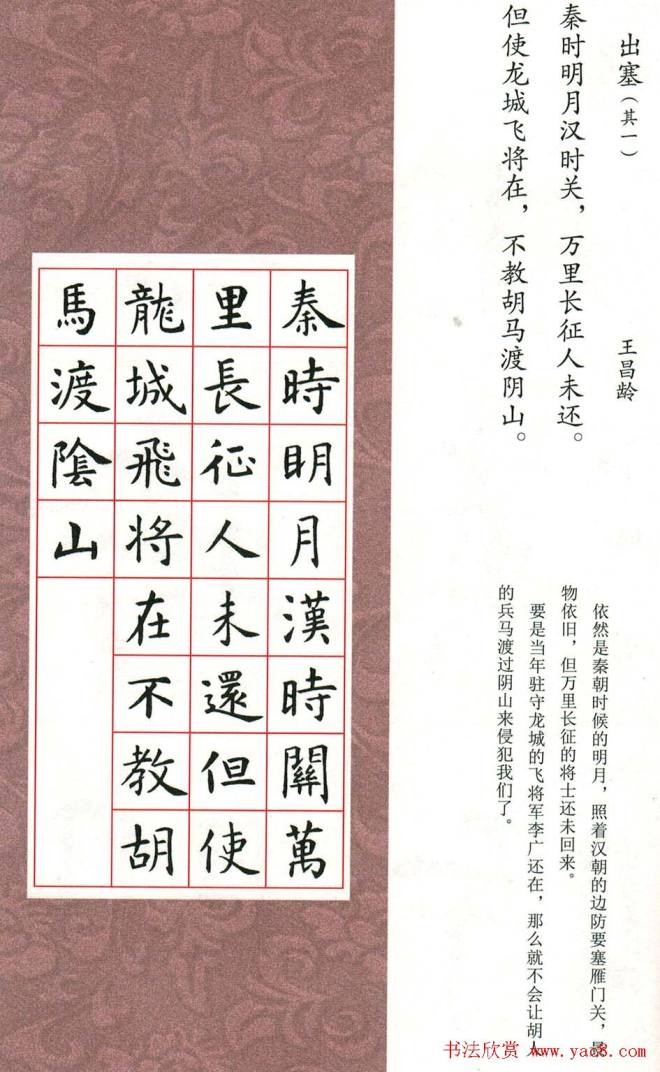 出塞（其一）
王昌龄
秦时明月汉时关，万里长征人未还。
但使龙城飞将在，不教胡马渡阴山。
依然是秦朝时候的明月，照着汉朝的边防要塞雁门关，景
物依旧，但万里长征的将士还未回来。
要是当年驻守龙城的飞将军李广还在，那么就不会让胡人
的兵马渡过阴山来侵犯我们了。
秦時明月漢時關萬
里長征人未還但使
龍城飛将在不教胡
馬渡陰山
书法欣赏 www.yac8.com